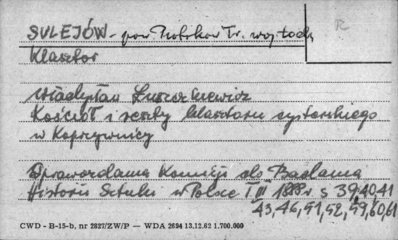 SULEJÓW - pow Piotrków Tr. woj. Łódź
R
Klasztor
Władysław Łuszczkiewicz
Kościół i reszty klasztoru cysterskiego
w Koprzywnicy
Sprawozdania Komisji do Badania
Historii Sztuki w Polsce T III 1888 r s 39, 40, 41
43, 46, 51, 52, 59, 60, 61
CWD - B-15-b, nr 2827/ZW/P — WDA 2694 13.12.62 1.700.000